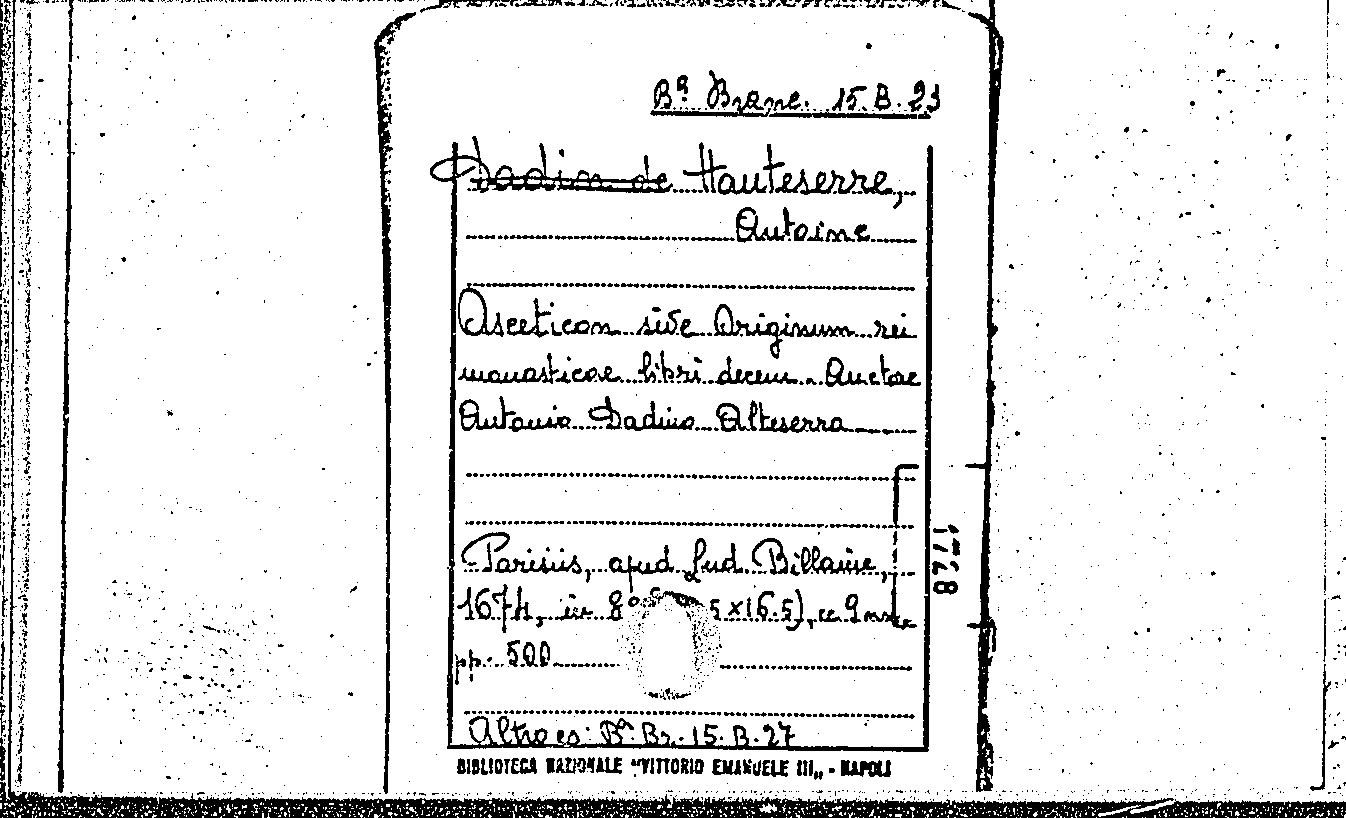 Bª Branc. 15. B. 23
Dadin de Hauteserre,
Antoine
Asceticon sive Originum rei
monasticae libri decem. Auctore
Antonio Dadino Alteserra
Parisiis, apud Lud Billaine,
1674, in 8° 5 x 16.5), cc 9 nn,
pp. 500
Altro es: Bª Br. 15. B. 27
BIBLIOTECA NAZIONALE "VITTORIO EMANUELE III„ - NAPOLI
1728